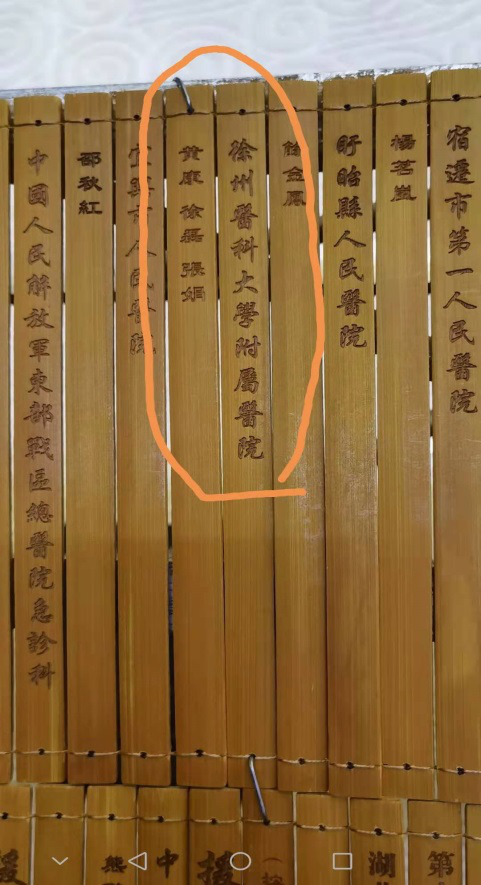 宿遷市第一人民醫院
楊茗嵐
盱眙縣人民醫院
金鳳
徐州醫科大學附屬醫院
黃康 徐磊 張娟
宜興市人民醫院
邵秋紅
中國人民解放軍東部戰區總醫院急診科
第
湖
援
中
熊
援